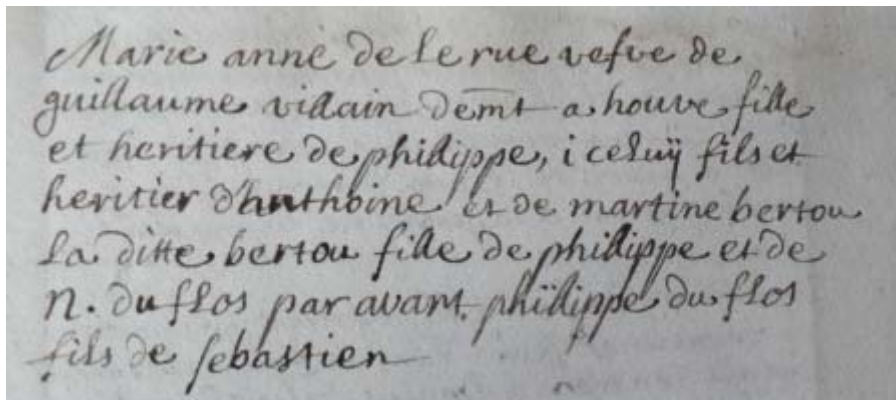 Marie anne de le rue vefve de
guillaume villain demt a houve fille
et heritiere de philippe, i celuÿ fils et
heritier d'anthoine et de martine bertou
la ditte bertou fille de philippe et de
n. du flos par avant philippe du flos
fils de sebastien